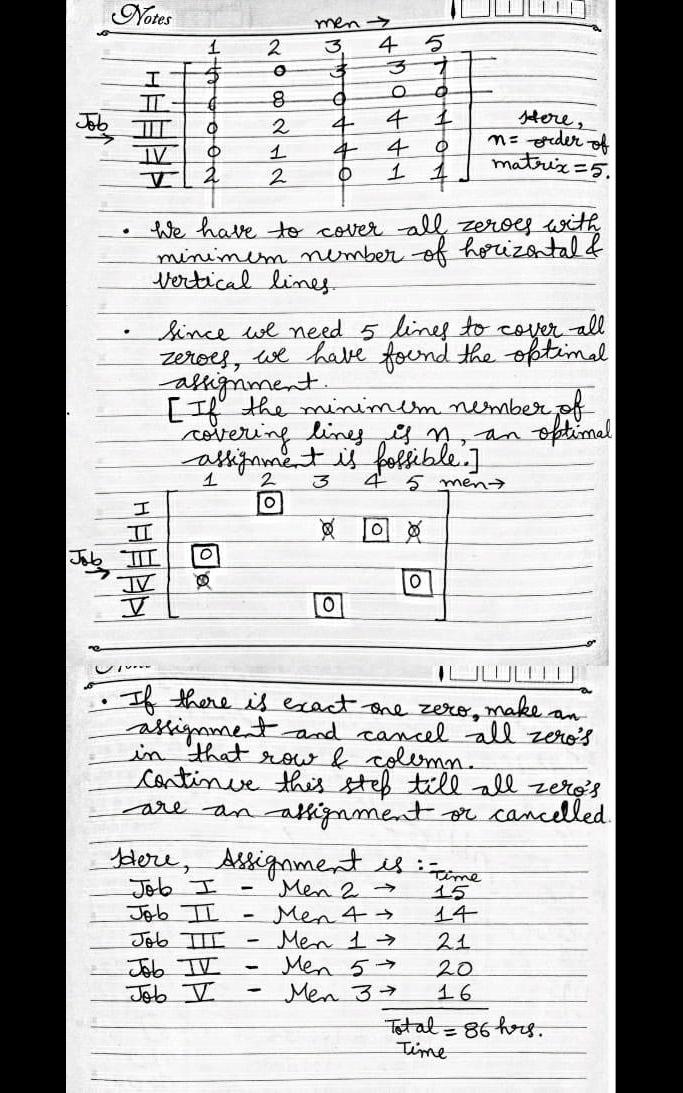 Notes
men →
1 2 3 4 5
I 5 0 3 3 7
II 6 8 0 0 0
Job → III 0 2 4 4 1
IV 0 1 4 4 0
V 2 2 0 1 1
Here,
n = order of
matrix = 5.
• We have to cover all zeroes with
minimum number of horizontal &
vertical lines.
• Since we need 5 lines to cover all
zeroes, we have found the optimal
assignment.
[If the minimum number of
covering lines is n, an optimal
assignment is possible.]
1 2 3 4 5 men→
I 0
II 0 0 0
Job → III 0
IV 0 0
V 0
• If there is exact one zero, make an
assignment and cancel all zero's
in that row & column.
Continue this step till all zero's
are an assignment or cancelled.
Here, Assignment is :-
Time
Job I - Men 2 → 15
Job II - Men 4 → 14
Job III - Men 1 → 21
Job IV - Men 5 → 20
Job V - Men 3 → 16
Total = 86 hrs.
Time